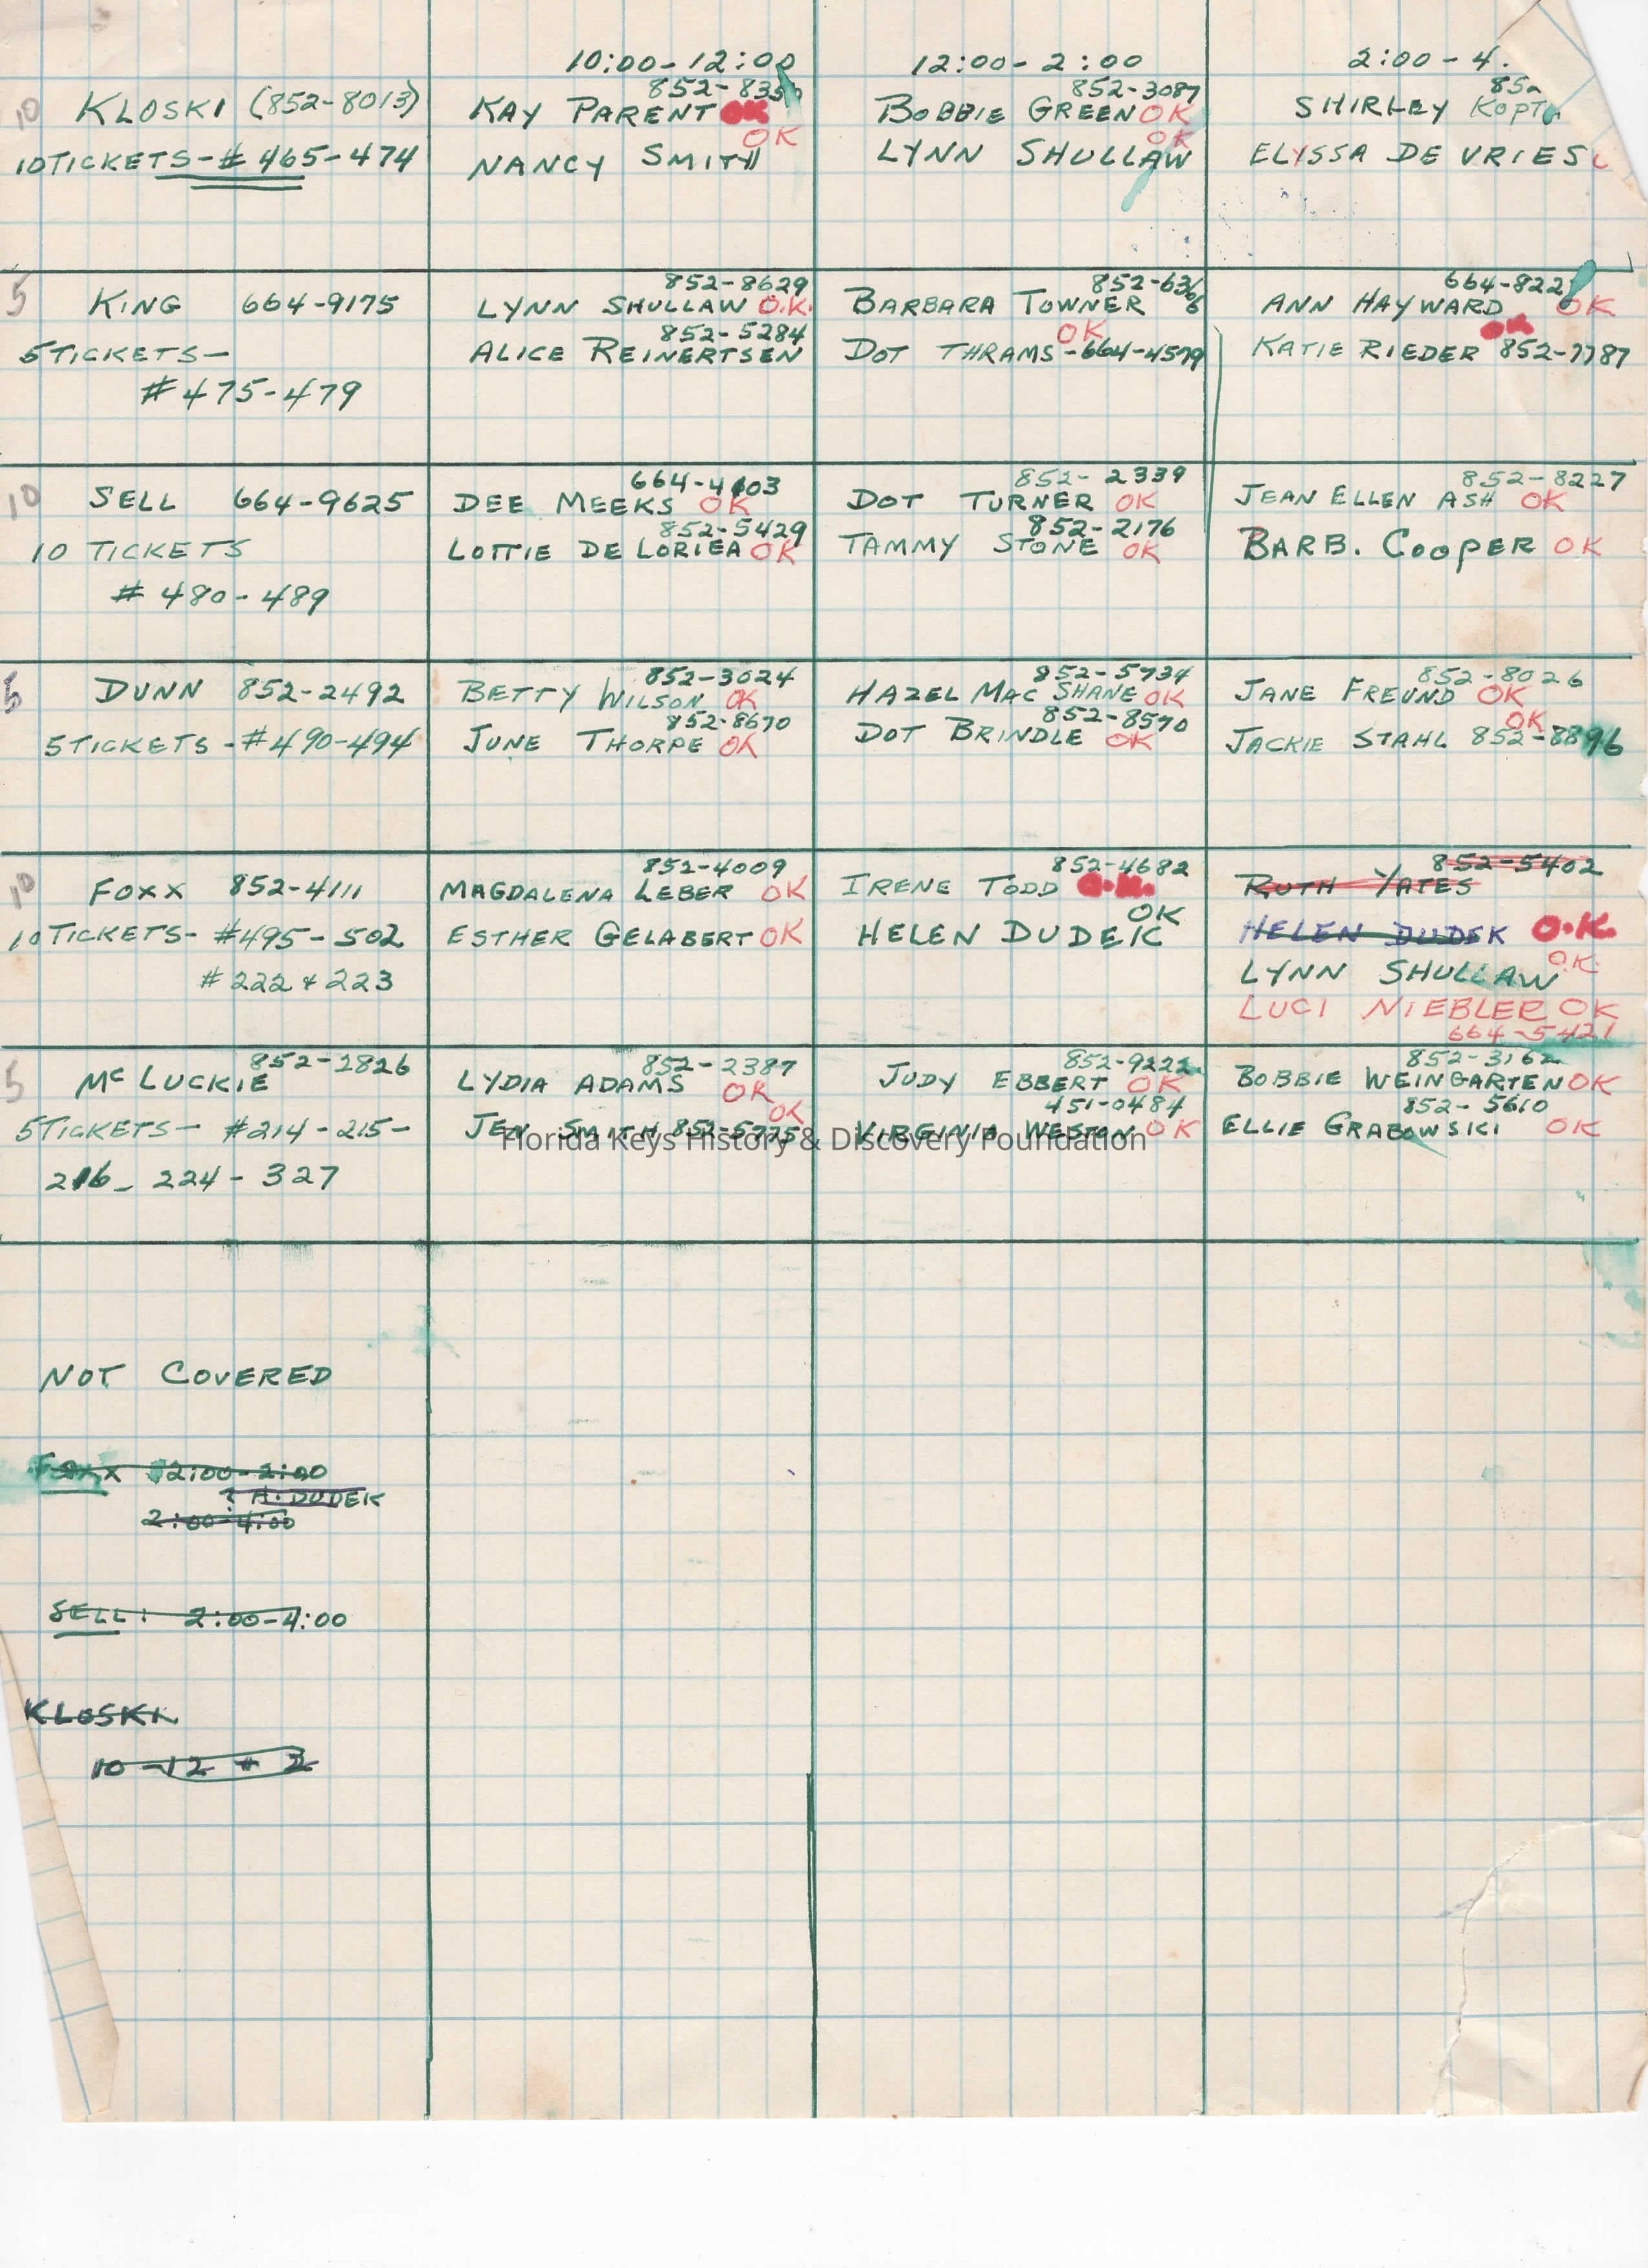 10:00-12:00 12:00-2:00 2:00-4.
10 KLOSKI (852-8013)
10 TICKETS-# 465-474
KAY PARENT OK
OK
NANCY SMITH
852-3087
BOBBIE GREEN OK
OK
LYNN SHULLAW
852
SHIRLEY
ELYSSA DE VRIES
5 KING 664-9175
5 TICKETS-
#475-479
852-8629
LYNN SHULLAW O.K.
852-5284
ALICE REINERTSEN
BARBARA TOWNER
OK
DOT THRAMS-664-4579
ANN HAYWARD OK
OK
KATIE RIEDER 852-7787
10 SELL 664-9625
10 TICKETS
# 480-489
DEE MEEKS OK
852-5429
LOTTIE DE LORIEA OK
852-2339
DOT TURNER OK
852-2176
TAMMY STONE OK
852-8227
JEAN ELLEN ASH OK
BARB. COOPER OK
5 DUNN 852-2492
5 TICKETS-#490-494
852-3024
BETTY WILSON OK
852-8670
JUNE THORPE OK
852-5734
HAZEL MAC SHANE OK
852-8570
DOT BRINDLE OK
852-8026
JANE FREUND OK
OK
JACKIE STAHL 852-8896
10 FOXX 852-4111
10 TICKETS- #495-502
# 222 & 223
852-4009
MAGDALENA LEBER OK
ESTHER GELABERT OK
852-4682
IRENE TODD O.K.
OK
HELEN DUDEK
852-5402
RUTH YATES
HELEN DUDEK O.K.
O.K.
LYNN SHULLAW
LUCI NIEBLER OK
664-5421
5 852-2826
Mc LUCKIE
5 TICKETS- #214-215-
216- 224- 327
852-2387
LYDIA ADAMS OK
OK
JEN SMITH 852-5775
852-9222
JUDY EBBERT OK
451-0484
VIRGINIA WESTON OK
852-3162
BOBBIE WEINGARTEN OK
852-5610
ELLIE GRABOWSKI OK
Florida Keys History & Discovery Foundation
NOT COVERED
FOXX 12:00-2:00
? H. DUDEK
2:00-4:00
SELL: 2:00-4:00
KLOSKI
10-12 + 2